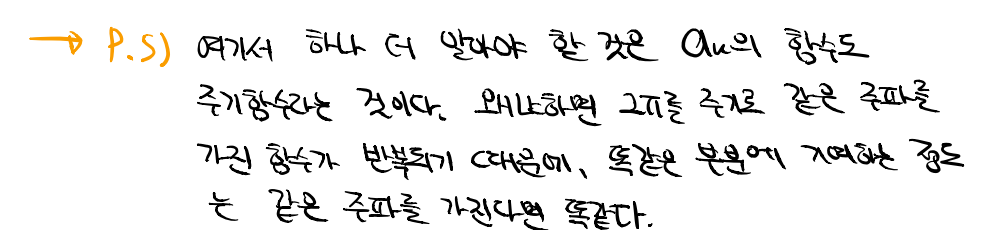 → P.S) 여기서 하나 더 알아야 할 것은 aₖ의 함수도
주기함수라는 것이다. 왜냐하면 2π를 주기로 같은 주파를
가진 함수가 반복되기 때문에, 똑같은 부분에 기여하는 정도
는 같은 주파를 가진다면 똑같다.